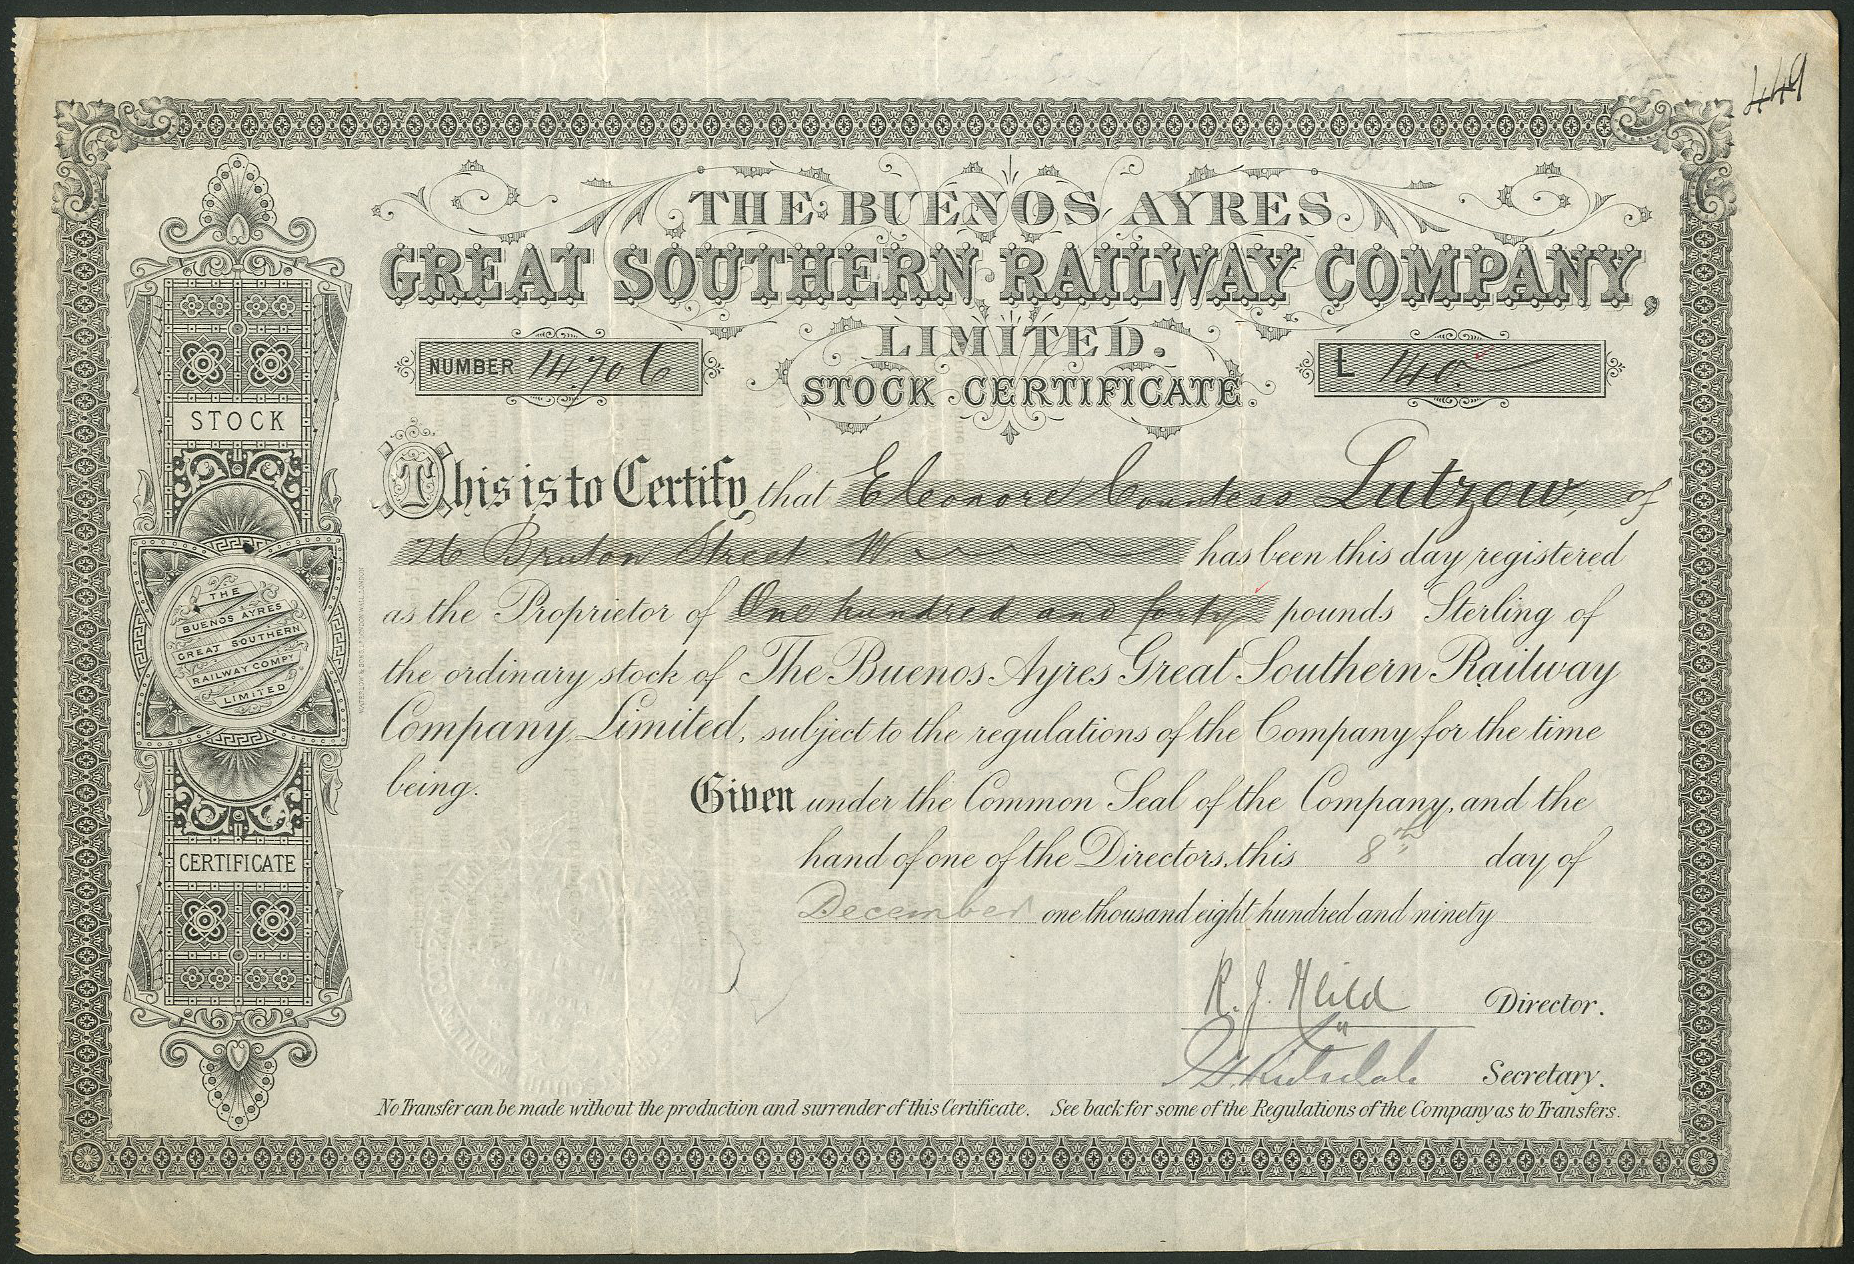 449
THE BUENOS AYRES
GREAT SOUTHERN RAILWAY COMPANY,
LIMITED.
NUMBER 14706
STOCK CERTIFICATE.
£ 140
STOCK
THE
BUENOS AYRES
GREAT SOUTHERN
RAILWAY COMPY
LIMITED
CERTIFICATE
This is to Certify that Eleonore Countess Lutzow, of
26 Bruton Street. W. has been this day registered
as the Proprietor of One hundred and forty pounds Sterling of
the ordinary stock of The Buenos Ayres Great Southern Railway
Company, Limited, subject to the regulations of the Company for the time
being.
Given under the Common Seal of the Company, and the
hand of one of the Directors, this 8th day of
December one thousand eight hundred and ninety
R. J. Director.
Secretary.
No Transfer can be made without the production and surrender of this Certificate. See back for some of the Regulations of the Company as to Transfers.